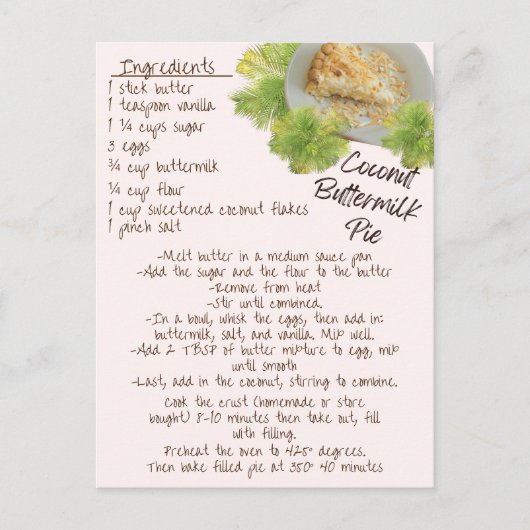 Ingredients
1 stick butter
1 teaspoon vanilla
1 ¼ cups sugar
3 eggs
¾ cup buttermilk
¼ cup flour
1 cup sweetened coconut flakes
1 pinch salt
Coconut
Buttermilk
Pie
-Melt butter in a medium sauce pan
-Add the sugar and the flour to the butter
-Remove from heat
-Stir until combined.
-In a bowl, whisk the eggs, then add in:
buttermilk, salt, and vanilla. Mix well.
-Add 2 TBSP of butter mixture to egg, mix
until smooth
-Last, add in the coconut, stirring to combine.
Cook the crust (homemade or store
bought) 8-10 minutes then take out, fill
with filling.
Preheat the oven to 425° degrees.
Then bake filled pie at 350° 40 minutes